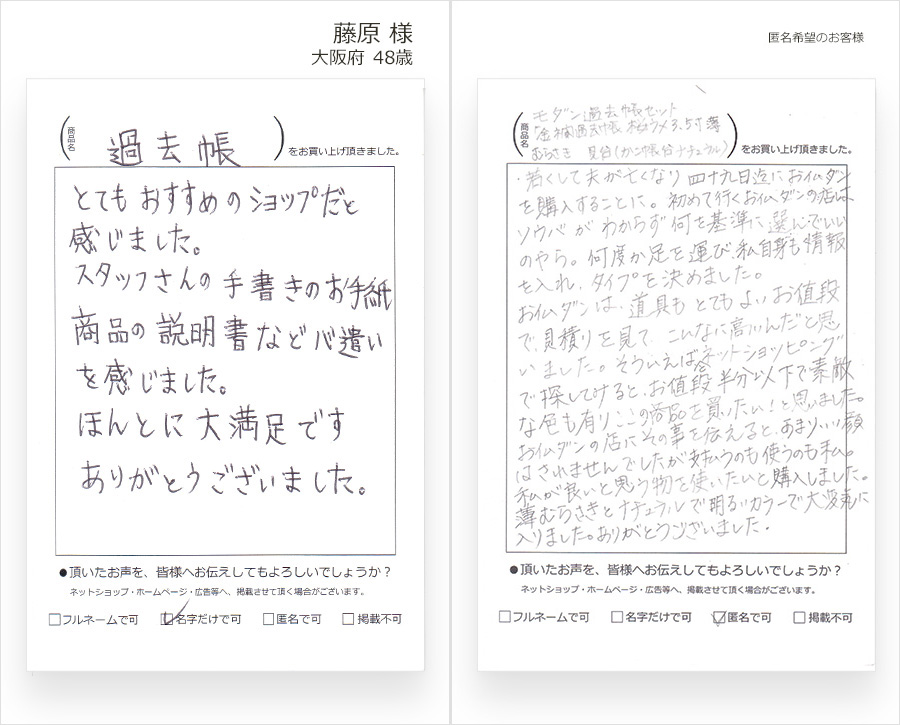 藤原 様
大阪府 48歳
商品名
過去帳
をお買い上げ頂きました。
とてもおすすめのショップだと
感じました。
スタッフさんの手書きのお手紙
商品の説明書など心遣い
を感じました。
ほんとに大満足です
ありがとうございました。
●頂いたお声を、皆様へお伝えしてもよろしいでしょうか?
ネットショップ・ホームページ・広告等へ、掲載させて頂く場合がございます。
□フルネームで可 ☑名字だけで可 □匿名で可 □掲載不可
匿名希望のお客様
商品名
モダン過去帳セット
過去帳 3.5寸 薄
むらさき 見台(かご帳台ナチュラル)
をお買い上げ頂きました。
・若くして夫が亡くなり 四十九日迄にお仏ダン
を購入することに。初めて行くお仏ダンの店は
ソウバがわからず何を基準に選んでいい
のやら。何度か足を運び、私自身も情報
を入れ、タイプを決めました。
お仏ダンは、道具もとてもよいお値段
で、見積りを見て、こんなに高いんだと思
いました。そういえばネットショッピング
で探してみると、お値段半分以下で素敵
な色も有り、ここの商品を買いたい!と思いました。
お仏ダンの店にその事を伝えると、あまりいい顔
はされませんでしたが支払うのも使うのも私。
私が良いと思う物を使いたいと購入しました。
薄むらさきとナチュラルで明るいカラーで大変気に
入りました。ありがとうございました。
●頂いたお声を、皆様へお伝えしてもよろしいでしょうか?
ネットショップ・ホームページ・広告等へ、掲載させて頂く場合がございます。
□フルネームで可 □名字だけで可 ☑匿名で可 □掲載不可